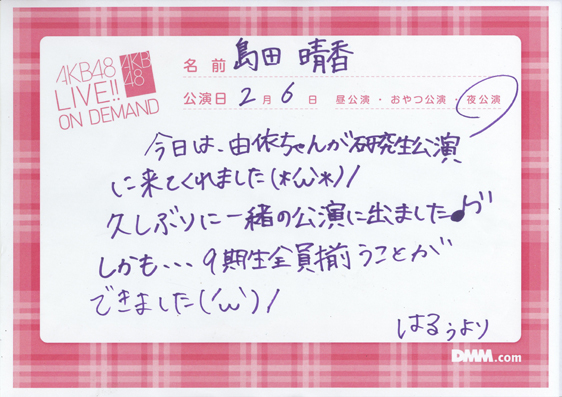 AKB48
LIVE!!
ON DEMAND
AKB
48
名前 島田 晴香
公演日 2月6日 昼公演・おやつ公演・夜公演
今日は、由依ちゃんが研究生公演
に来てくれました(*'ω'*)/
久しぶりに一緒の公演に出ました♪
しかも・・・9期生全員揃うことが
できました('ω')/
はるぅより
DMM.com